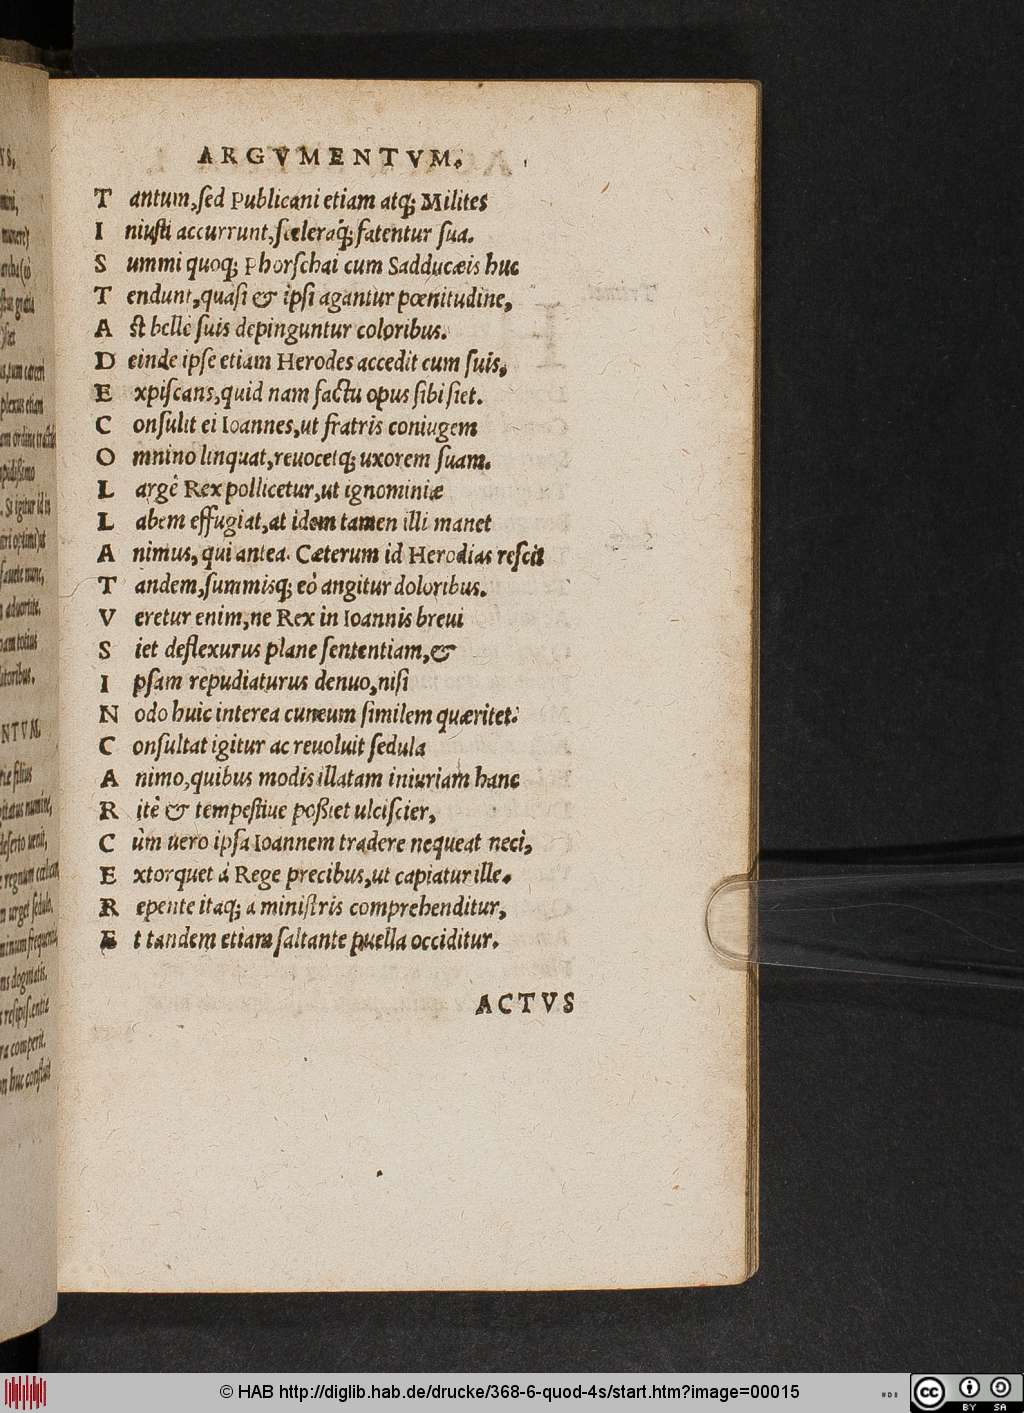 ARGVMENTVM.
T antum, sed Publicani etiam atq; Milites
I niusti accurrunt, sceleraq́; fatentur sua.
S ummi quoq; Phorschai cum Sadducæis huc
T endunt, quasi & ipsi agantur pœnitudine,
A st bellè suis depinguntur coloribus.
D einde ipse etiam Herodes accedit cum suis,
E xpiscans, quid nam factu opus sibi siet.
C onsulit ei Ioannes, ut fratris coniugem
O mnino linquat, reuocetq; uxorem suam.
L argè Rex pollicetur, ut ignominiæ
L abem effugiat, at idem tamen illi manet
A nimus, qui antea. Cæterum id Herodias rescit
T andem, summisq; eò angitur doloribus.
V eretur enim, ne Rex in Ioannis breui
S iet deflexurus plane sententiam, &
I psam repudiaturus denuo, nisi
N odo huic interea cuneum similem quæritet.
C onsultat igitur ac reuoluit sedula
A nimo, quibus modis illatam iniuriam hanc
R itè & tempestiue poßiet ulciscier,
C ùm uero ipsa Ioannem tradere nequeat neci,
E xtorquet á Rege precibus, ut capiatur ille.
R epente itaq; a ministris comprehenditur,
E t tandem etiam saltante puella occiditur.
ACTVS
© HAB http://diglib.hab.de/drucke/368-6-quod-4s/start.htm?image=00015
cc BY SA